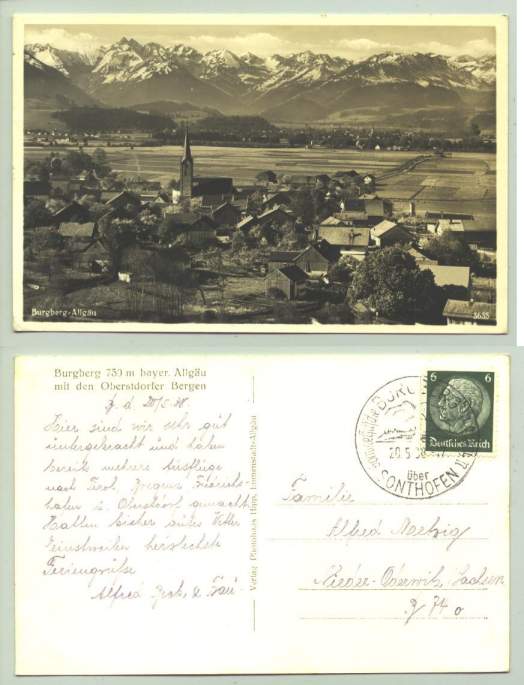 Burgberg-Allgäu
3635
Burgberg 750 m bayer. Allgäu
mit den Oberstdorfer Bergen
20/5.38.
Hier sind wir sehr gut
untergebracht und haben
bereits mehrere Ausflüge
nach Tirol, Friedrichs-
hafen u. Oberstdorf gemacht
Hatten bisher gutes Wetter
Einstweilen herzlichste
Feriengrüße
Alfred u.
Verlag Photohaus Hipp, Immenstadt-Allgäu
6 6
Deutsches Reich
20.5.38
über
SONTHOFEN
Familie
Alfred
Nieder-Oderwitz, Sachsen